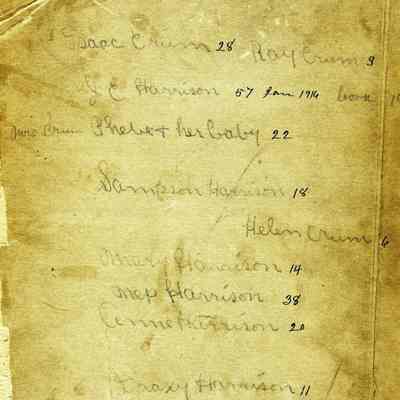 Isaac Crum 28 Ray Crum 3
J E Harrison 57 Jan 1914 born
Mrs Crum Phebe & her baby 22
Sampson Harrison 18
Helen Crum 6
Emery Harrison 14
Mep Harrison 38
Lennie Harrison 20
Harrison 11